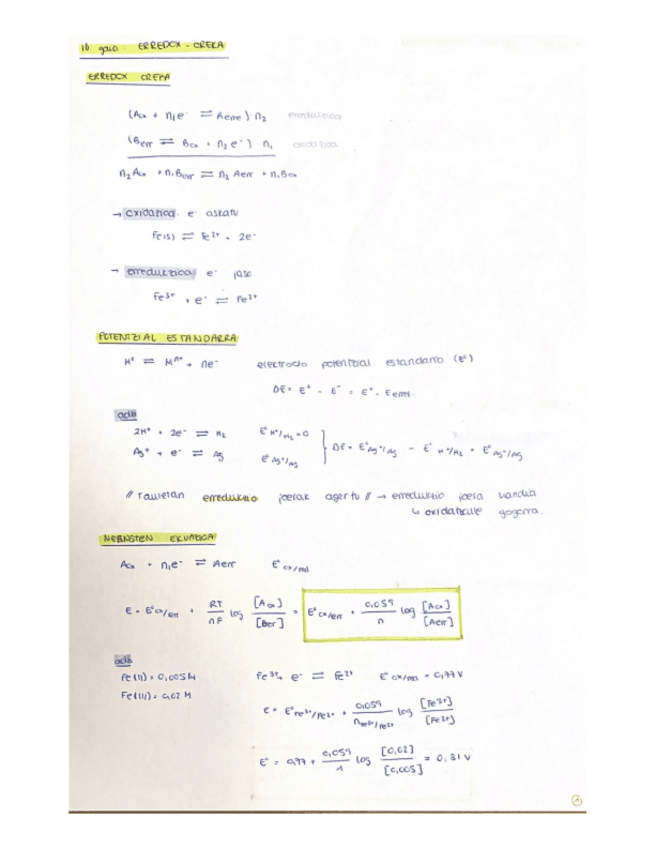 16. gaia: ERREDOX-OREKA
ERREDOX OREKA
(Aox + n₁e⁻ ⇌ Aerre) · n₂ erredukzioa
(Berr ⇌ Box + n₂e⁻) · n₁ oxidazioa
n₂Aox + n₁Berr ⇌ n₂Aerr + n₁Box
→ oxidazioa: e⁻ askatu
Fe(s) ⇌ Fe²⁺ + 2e⁻
→ erredukzioa: e⁻ jaso
Fe³⁺ + e⁻ ⇌ Fe²⁺
POTENTZIAL ESTANDARRA
⇌ Mⁿ⁺ + ne⁻ elektrodo potentzial estandarra (E°)
ΔE = E⁺ - E⁻ = E⁺ -
adb
2H⁺ + 2e⁻ ⇌ H₂ E°H⁺/H₂ = 0
Ag⁺ + e⁻ ⇌ Ag E°Ag⁺/Ag
ΔE = E°Ag⁺/Ag - E°H⁺/H₂ = E°Ag⁺/Ag
// Tauletan erredukzio joerak agertu // → erredukzio joera handia
↳ oxidatzaile gogorra.
NERNSTEN EKUAZIOA
Aox + n₁e⁻ ⇌ Aerr E°ox/red
E = E°ox/err + RT/nF log [Aox]/[Berr] = E°ox/err + 0,059/n log [Aox]/[Aerr]
adb
Fe(II) = 0,005M Fe³⁺ + e⁻ ⇌ Fe²⁺ E°ox/red = 0,77 V
Fe(III) = 0,02 M
E = E°Fe³⁺/Fe²⁺ + 0,059/nFe³⁺/Fe²⁺ log [Fe³⁺]/[Fe²⁺]
E° = 0,77 + 0,059/1 log [0,02]/[0,005] = 0,81 V